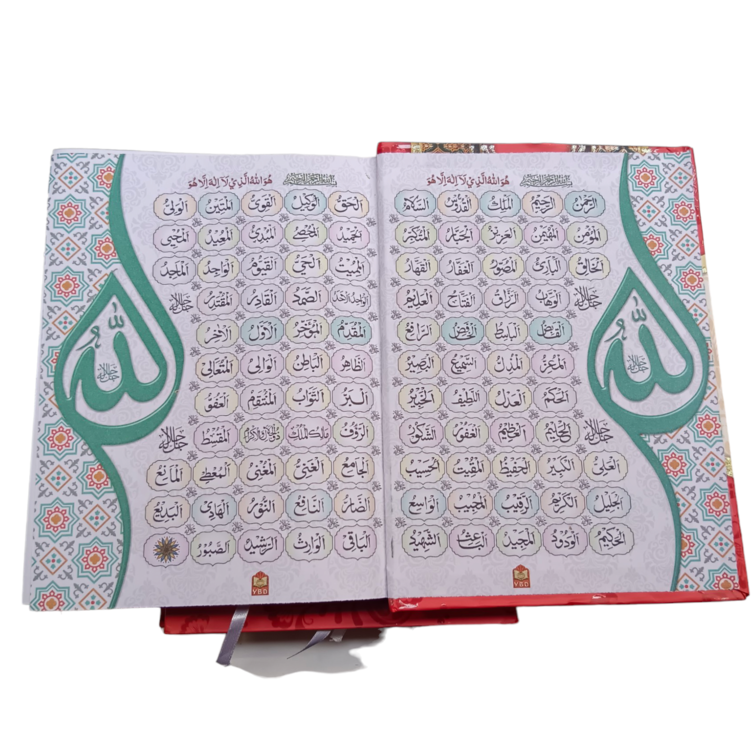 بِسْمِ اللهِ الرَّحْمٰنِ الرَّحِيْمِ هُوَ اللهُ الَّذِيْ لَآ اِلٰهَ اِلَّا هُوَ
اَلرَّحْمٰنُ اَلرَّحِيْمُ اَلْمَلِكُ اَلْقُدُّوْسُ اَلسَّلَامُ
اَلْمُؤْمِنُ اَلْمُهَيْمِنُ اَلْعَزِيْزُ اَلْجَبَّارُ اَلْمُتَكَبِّرُ
اَلْخَالِقُ اَلْبَارِئُ اَلْمُصَوِّرُ اَلْغَفَّارُ اَلْقَهَّارُ
جَلَّ جَلَالُهٗ اَلْوَهَّابُ اَلرَّزَّاقُ اَلْفَتَّاحُ اَلْعَلِيْمُ
اَلْقَابِضُ اَلْبَاسِطُ اَلْخَافِضُ اَلرَّافِعُ
اَلْمُعِزُّ اَلْمُذِلُّ اَلسَّمِيْعُ اَلْبَصِيْرُ
اَلْحَكَمُ اَلْعَدْلُ اَللَّطِيْفُ اَلْخَبِيْرُ
جَلَّ جَلَالُهٗ اَلْحَلِيْمُ اَلْعَظِيْمُ اَلْغَفُوْرُ اَلشَّكُوْرُ
اَلْعَلِيُّ اَلْكَبِيْرُ اَلْحَفِيْظُ اَلْمُقِيْتُ اَلْحَسِيْبُ
اَلْجَلِيْلُ اَلْكَرِيْمُ اَلرَّقِيْبُ اَلْمُجِيْبُ اَلْوَاسِعُ
اَلْحَكِيْمُ اَلْوَدُوْدُ اَلْمَجِيْدُ اَلْبَاعِثُ اَلشَّهِيْدُ
اَللّٰهُ جَلَّ جَلَالُهٗ
VBD
بِسْمِ اللهِ الرَّحْمٰنِ الرَّحِيْمِ هُوَ اللهُ الَّذِيْ لَآ اِلٰهَ اِلَّا هُوَ
اَلْحَقُّ اَلْوَكِيْلُ اَلْقَوِيُّ اَلْمَتِيْنُ اَلْوَلِيُّ
اَلْحَمِيْدُ اَلْمُحْصِيْ اَلْمُبْدِئُ اَلْمُعِيْدُ اَلْمُحْيِيْ
اَلْمُمِيْتُ اَلْحَيُّ اَلْقَيُّوْمُ اَلْوَاجِدُ اَلْمَاجِدُ
اَلْوَاحِدُ الْاَحَدُ اَلصَّمَدُ اَلْقَادِرُ اَلْمُقْتَدِرُ جَلَّ جَلَالُهٗ
اَلْمُقَدِّمُ اَلْمُؤَخِّرُ اَلْاَوَّلُ اَلْاٰخِرُ
اَلظَّاهِرُ اَلْبَاطِنُ اَلْوَالِيْ اَلْمُتَعَالِيْ
اَلْبَرُّ اَلتَّوَّابُ اَلْمُنْتَقِمُ اَلْعَفُوُّ
اَلرَّءُوْفُ مَالِكُ الْمُلْكِ ذُو الْجَلَالِ وَالْاِكْرَامِ اَلْمُقْسِطُ جَلَّ جَلَالُهٗ
اَلْجَامِعُ اَلْغَنِيُّ اَلْمُغْنِيْ اَلْمُعْطِيْ اَلْمَانِعُ
اَلضَّارُّ اَلنَّافِعُ اَلنُّوْرُ اَلْهَادِيْ اَلْبَدِيْعُ
اَلْبَاقِيْ اَلْوَارِثُ اَلرَّشِيْدُ اَلصَّبُوْرُ
اَللّٰهُ جَلَّ جَلَالُهٗ
VBD